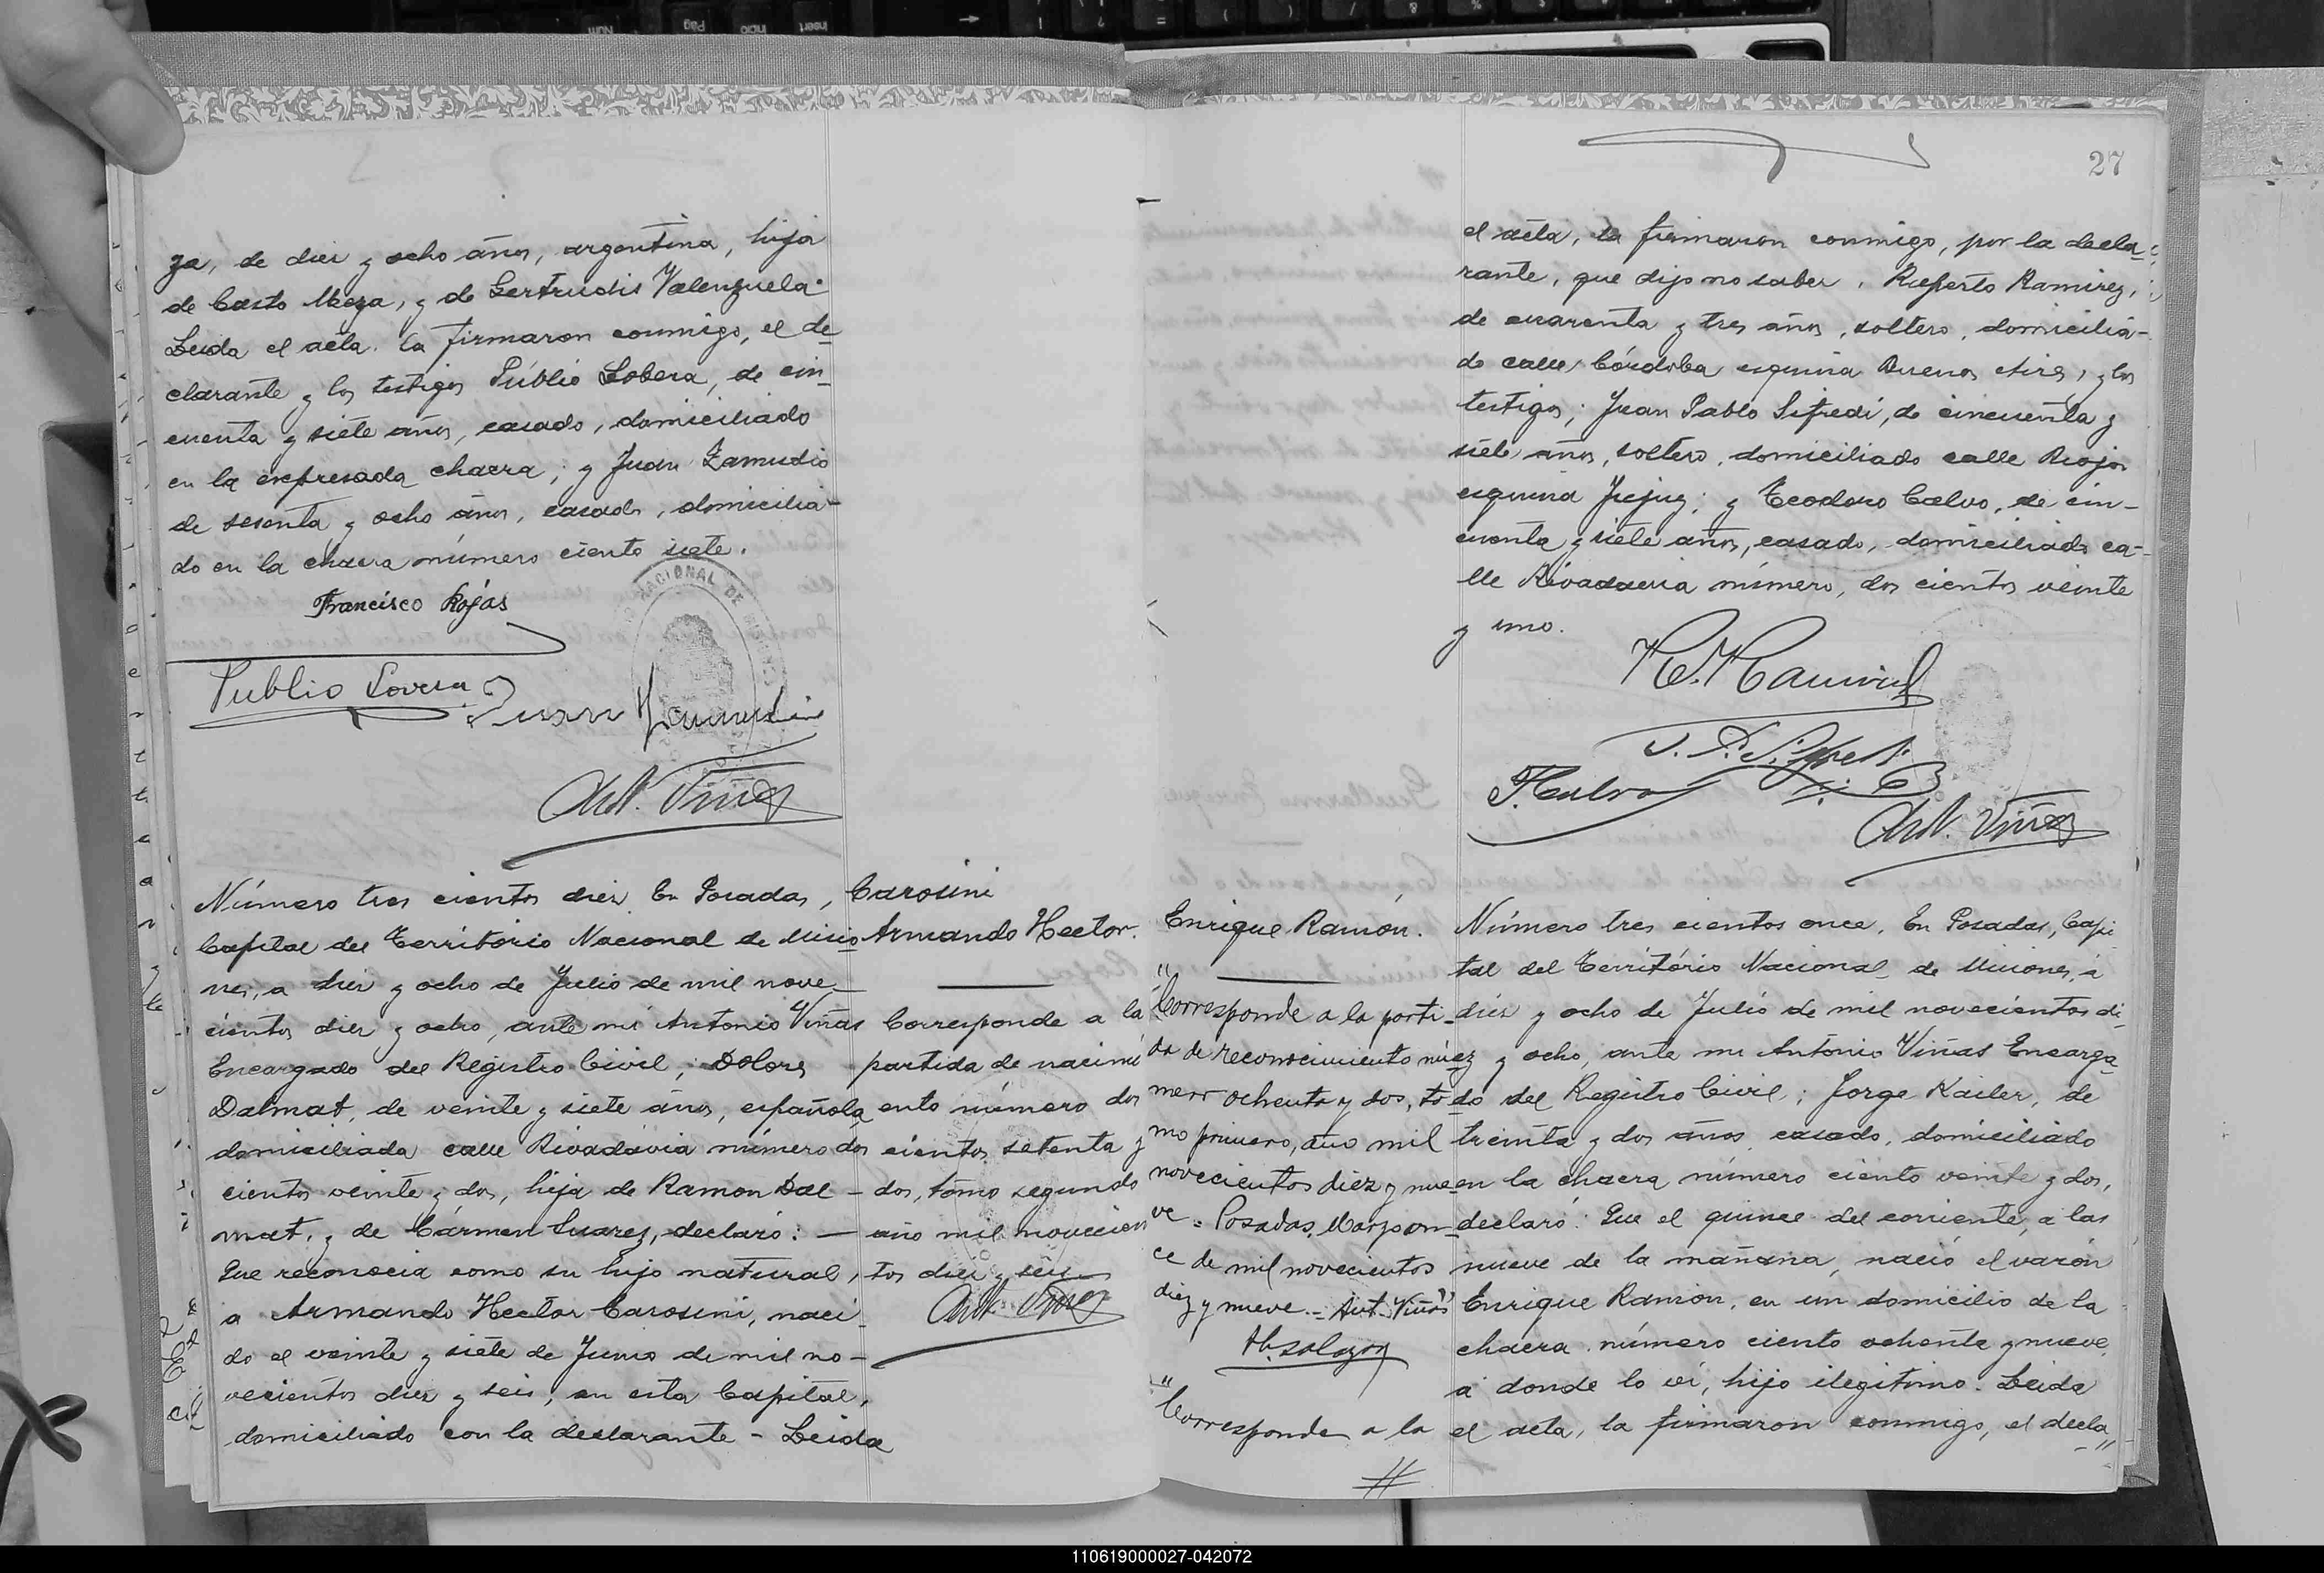 za, de diez y ocho años, argentina, hija
de Casto Meza, y de Gertrudis Valenzuela.
Leida el acta. la firmaron conmigo, el de
clarante y los testigos Público Lobera, de cin
cuenta y siete años, casado, domiciliado
en la expresada chacra; y Juan Zamudio
de sesenta y ocho años, casado, domicilia-
do en la chacra número ciento siete.
Francisco Rojas
Publio Lovera
Juan Zamudio
Ant. Viñas
Número tres cientos diez. En Posadas,
Capital del Território Nacional de Misio
nes, a diez y ocho de Julio de mil nove
cientos diez y ocho, ante mi Antonio Viñas
Encargado del Registro Civil; Dolores
Dalmat, de veinte y siete años, española
domiciliada calle Rivadávia número dos
cientos veinte y dos, hija de Ramon Dal-
mat, y de Cármen Suarez, declaró: —
Que reconocia como su hijo natural,
a Armando Hector Carosini, naci
do el veinte y siete de Junio de mil no-
vecientos diez y seis, en esta Capital,
domiciliado con la declarante - Leida
Carosini
Armando Hector.
Corresponde a la
partida de nacimi
ento número dos
cientos setenta y
dos, tomo segundo
año mil novecien
tos diez y seis
Ant. Viñas
27
el acta, la firmaron conmigo, por la decla
rante, que dijo no saber, Ruperto Ramirez,
de cuarenta y tres años, soltero, domicilia-
do calle Córdoba esquina Buenos Aires, y los
testigos; Juan Pablo Sifredi, de cincuenta y
siete años, soltero, domiciliado calle Rioja
esquina Jujuy; y Teodoro Calvo, de cin-
cuenta y siete años, casado, domiciliado ca-
lle Rivadavia número, dos cientos veinte
y uno.
R. Ramirez
J. P. Sifredi
T. Calvo
Ant. Viñas
Enrique Ramón.
"Corresponde a la parti-
da de reconocimiento nú
mero ochenta y dos, to
mo primero, año mil
novecientos diez y nue
ve = Posadas, Marzo on-
ce de mil novecientos
diez y nueve. - Ant. Viñas"
"Corresponde a la
#
Número tres cientos once. En Posadas, Capi
tal del Território Nacional de Misiones, a
diez y ocho de Julio de mil novecientos di
ez y ocho, ante mi Antonio Viñas Encarga
do del Registro Civil; Jorge Kailer, de
treinta y dos años casado, domiciliado
en la chacra número ciento veinte y dos,
declaró: Que el quince del corriente, a las
nueve de la mañana, nació el varón
Enrique Ramón, en un domicilio de la
chacra número ciento ochenta y nueve,
a donde lo ví, hijo ilegitimo. Leida
el acta, la firmaron conmigo, el decla
110619000027-042072